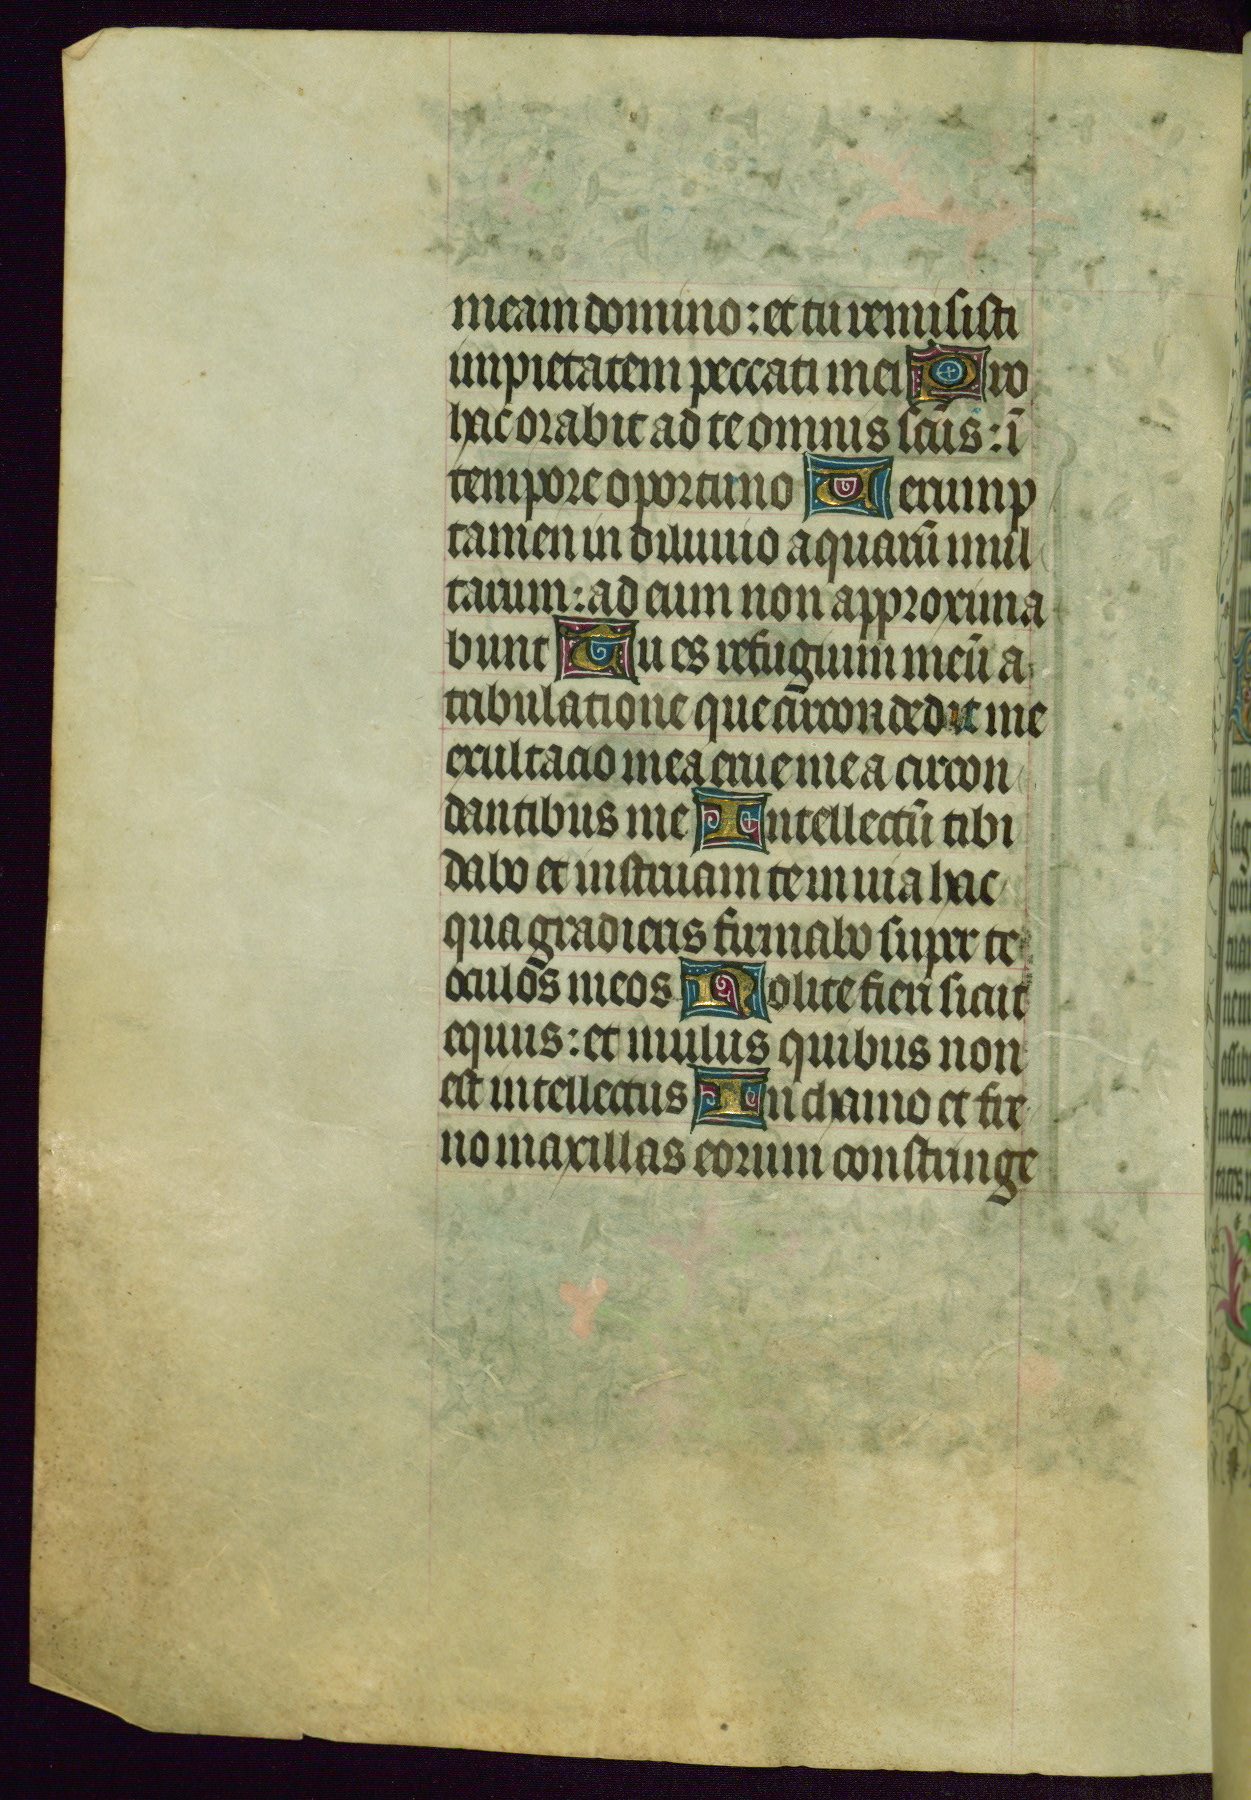 meam domino : et tu remisisti
impietatem peccati mei Pro
hac orabit ad te omnis scūs : ī
tempore oportuno Uerump
tamen in diluuio aquarū mul
tarum : ad eum non approxima
bunt Tu es refugium meū a
tribulatione que circondedit me
exultacio mea erue me a circon
dantibus me Intellectū tibi
dabo et instruam te in uia hac
qua gradieris firmabo super te
oculos meos Nolite fieri sicut
equus : et mulus quibus non
est intellectus In chamo et fre
no maxillas eorum constringe